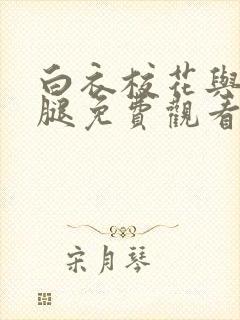 白衣校花與
腿免費觀看
宋月琴